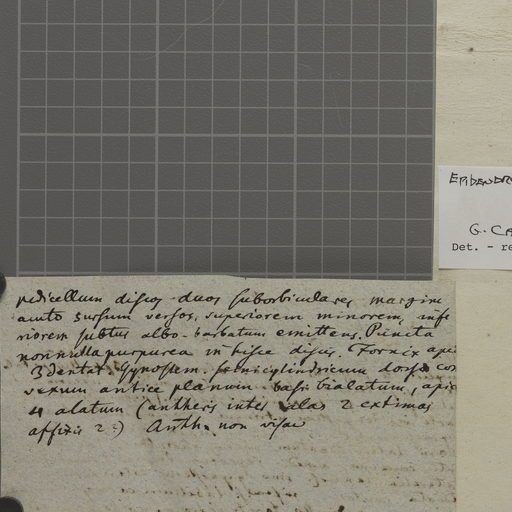 pedicellum discos duos suborbiculares margine
acuto sursum versos, superiorem minorem, infe
riorem subtus albo-barbatum emittens. Puncta
nonnulla purpurea in hisce discis. Fornix api
3dentat. Gynostem. semicylindricum dorso con
vexum antice planum basi bialatum, apic
4 alatum (antheris inter alas 2 extimas
affixis 2?) Anth. non visae
EPIDENDR
G. CA
Det. - re